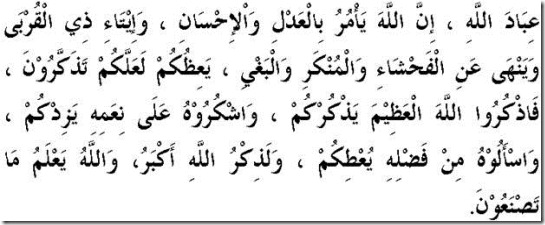 عِبَادَ اللَّهِ ، إِنَّ اللَّهَ يَأْمُرُ بِالْعَدْلِ وَاْلإِحْسَانِ ، وَإِيْتَاءِ ذِي الْقُرْبَى
وَيَنْهَى عَنِ الْفَحْشَاءِ وَالْمُنْكَرِ وَالْبَغْيِ ، يَعِظُكُمْ لَعَلَّكُمْ تَذَكَّرُوْنَ ،
فَاذْكُرُوا اللَّهَ الْعَظِيْمَ يَذْكُرْكُمْ ، وَاشْكُرُوْهُ عَلَى نِعَمِهِ يَزِدْكُمْ ،
وَاسْأَلُوْهُ مِنْ فَضْلِهِ يُعْطِكُمْ ، وَلَذِكْرُ اللَّهِ أَكْبَرُ، وَاللَّهُ يَعْلَمُ مَا
تَصْنَعُوْنَ.